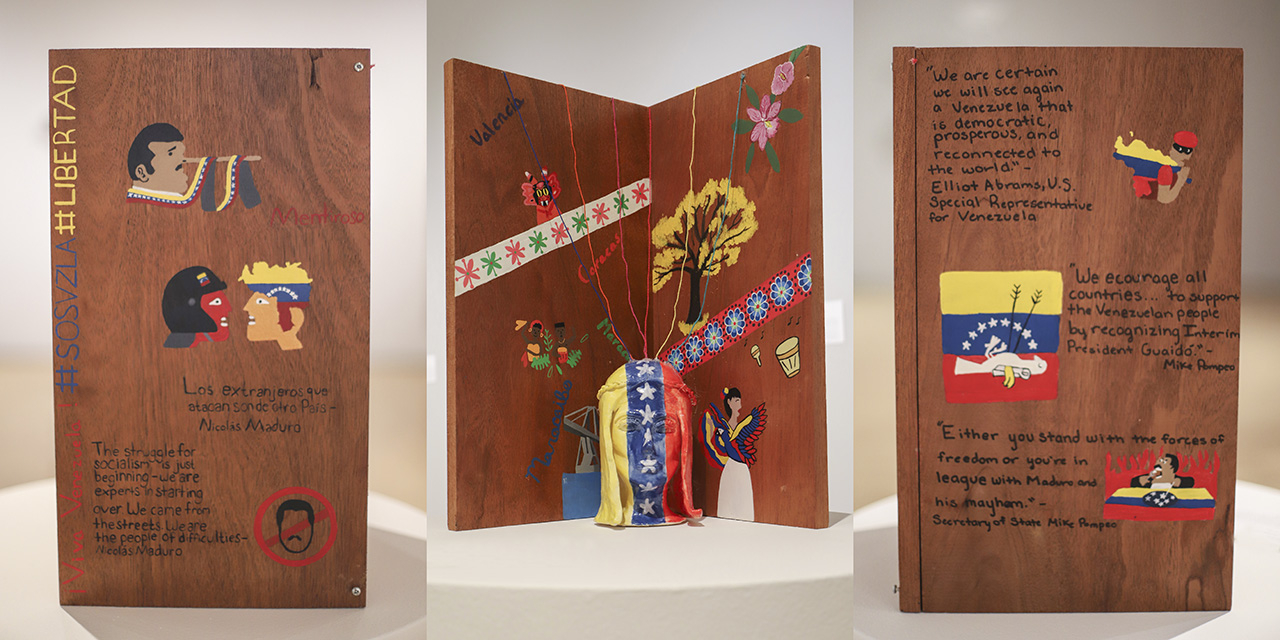 ¡Viva Venezuela! #SOSVZLA #LIBERTAD
Mentiroso
Los extranjeros que
atacan son de otro País -
Nicolás Maduro
The struggle for
socialism is just
beginning - we are
experts in starting
over. We came from
the streets. We are
the people of difficulties -
Nicolás Maduro
Valencia
Caracas
Maracaibo
"We are certain
we will see again
a Venezuela that
is democratic,
prosperous, and
reconnected to
the world." -
Elliot Abrams, U.S.
Special Representative
for Venezuela
"We ecourage all
countries... to support
the Venezuelan people
by recognizing Interim
President Guaidó." -
Mike Pompeo
"Either you stand with the forces of
freedom or you're in
league with Maduro and
his mayhem." -
Secretary of State Mike Pompeo